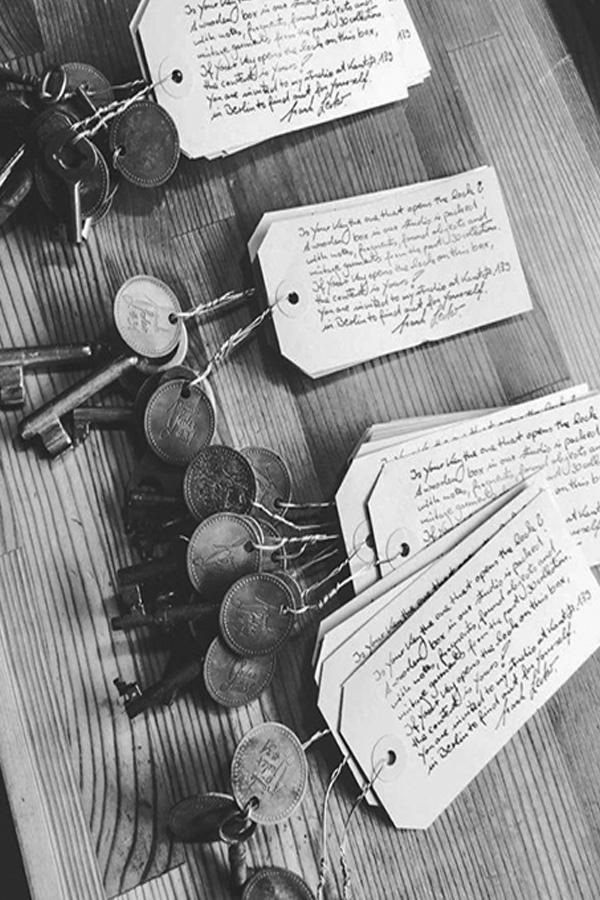 Is Your Key the one that opens the lock?
A wooden box in our studio is packed
with notes, fragments, found objects and
vintage garments from the past 30 collections.
If Your key opens the lock on this box,
the content is yours!
You are invited to my studio at Kantstr. 139
in Berlin to find out for yourself.
Frank Leder
Is Your Key the one that opens the lock?
A wooden box in our studio is packed
with notes, fragments, found objects and
vintage garments from the past 30 collections.
If Your key opens the lock on this box,
the content is yours!
You are invited to my studio at Kantstr. 139
in Berlin to find out for yourself.
Frank Leder
Is Your Key the one that opens the lock
A wooden box in our studio is packed
with notes, fragments, found objects
vintage garments
on this box
Is Your Key the one that opens the lock?
A wooden box in our studio is packed
with notes, fragments, found objects and
vintage garments from the past 30 collections.
If Your key opens the lock on this box,
the content is yours!
You are invited to my studio at Kantstr. 139
in Berlin to find out for yourself.
Frank Leder